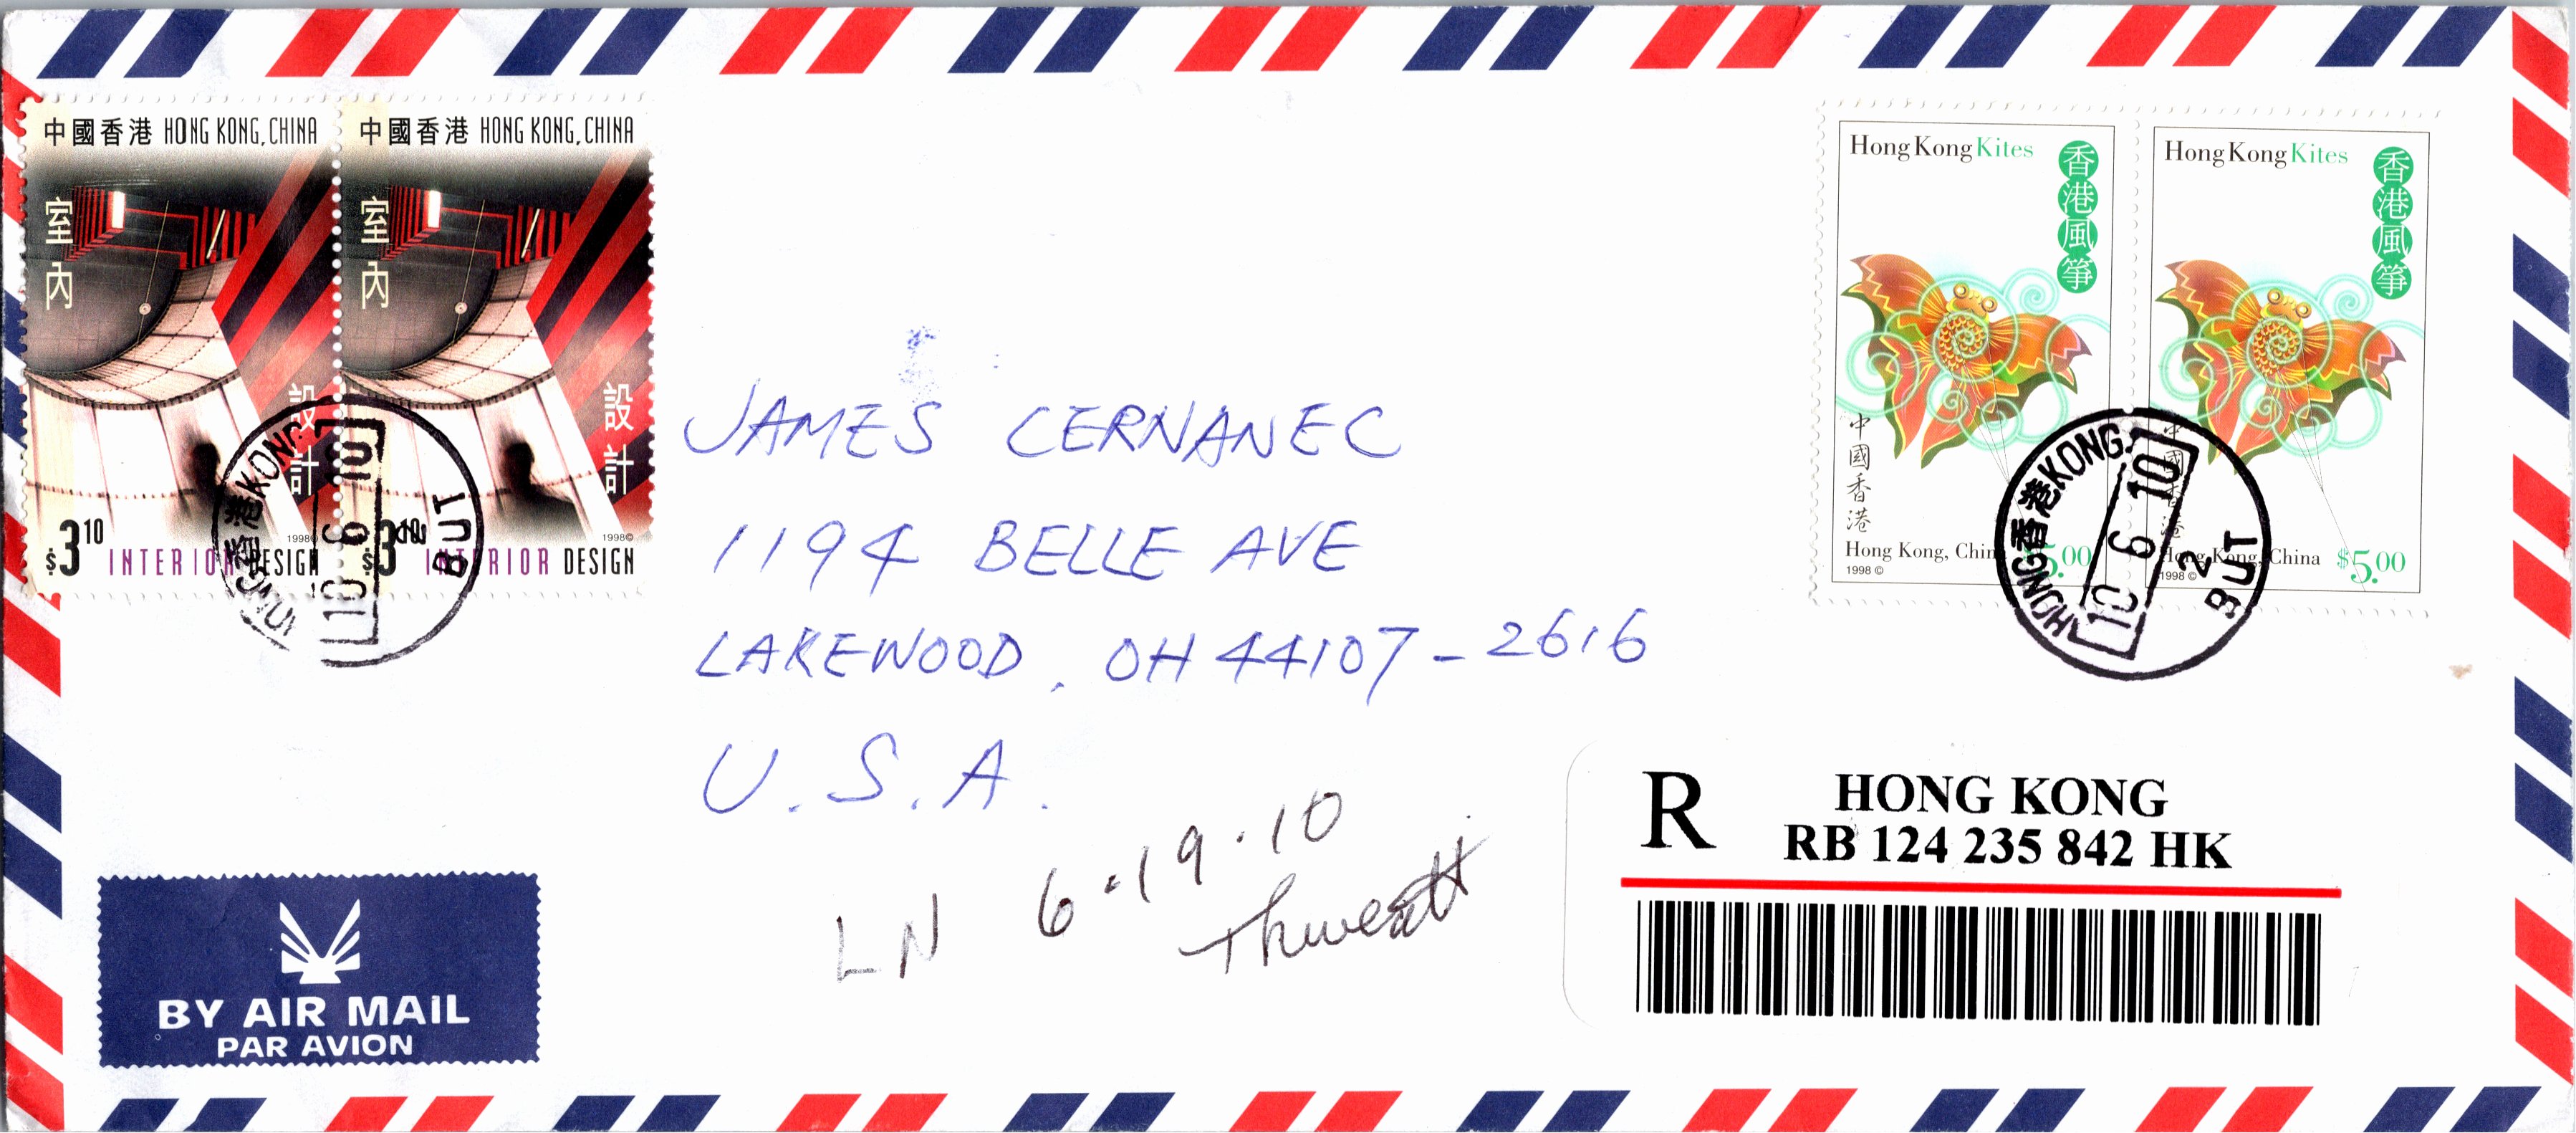 中國香港 HONG KONG, CHINA
室內
設計
$3.10
1998©
INTERIOR DESIGN
中國香港 HONG KONG, CHINA
室內
設計
$3.10
1998©
INTERIOR DESIGN
HONG 香港 KONG
10 6 10
BUT
Hong Kong Kites
香港風箏
中國香港
Hong Kong, China $5.00
1998 ©
Hong Kong Kites
香港風箏
中國香港
Hong Kong, China $5.00
1998 ©
HONG 香港 KONG
10 6 10
2
BUT
JAMES CERNANEC
1194 BELLE AVE
LAKEWOOD, OH 44107-2616
U.S.A.
LN 6.19.10
Thweatt
R HONG KONG
RB 124 235 842 HK
BY AIR MAIL
PAR AVION